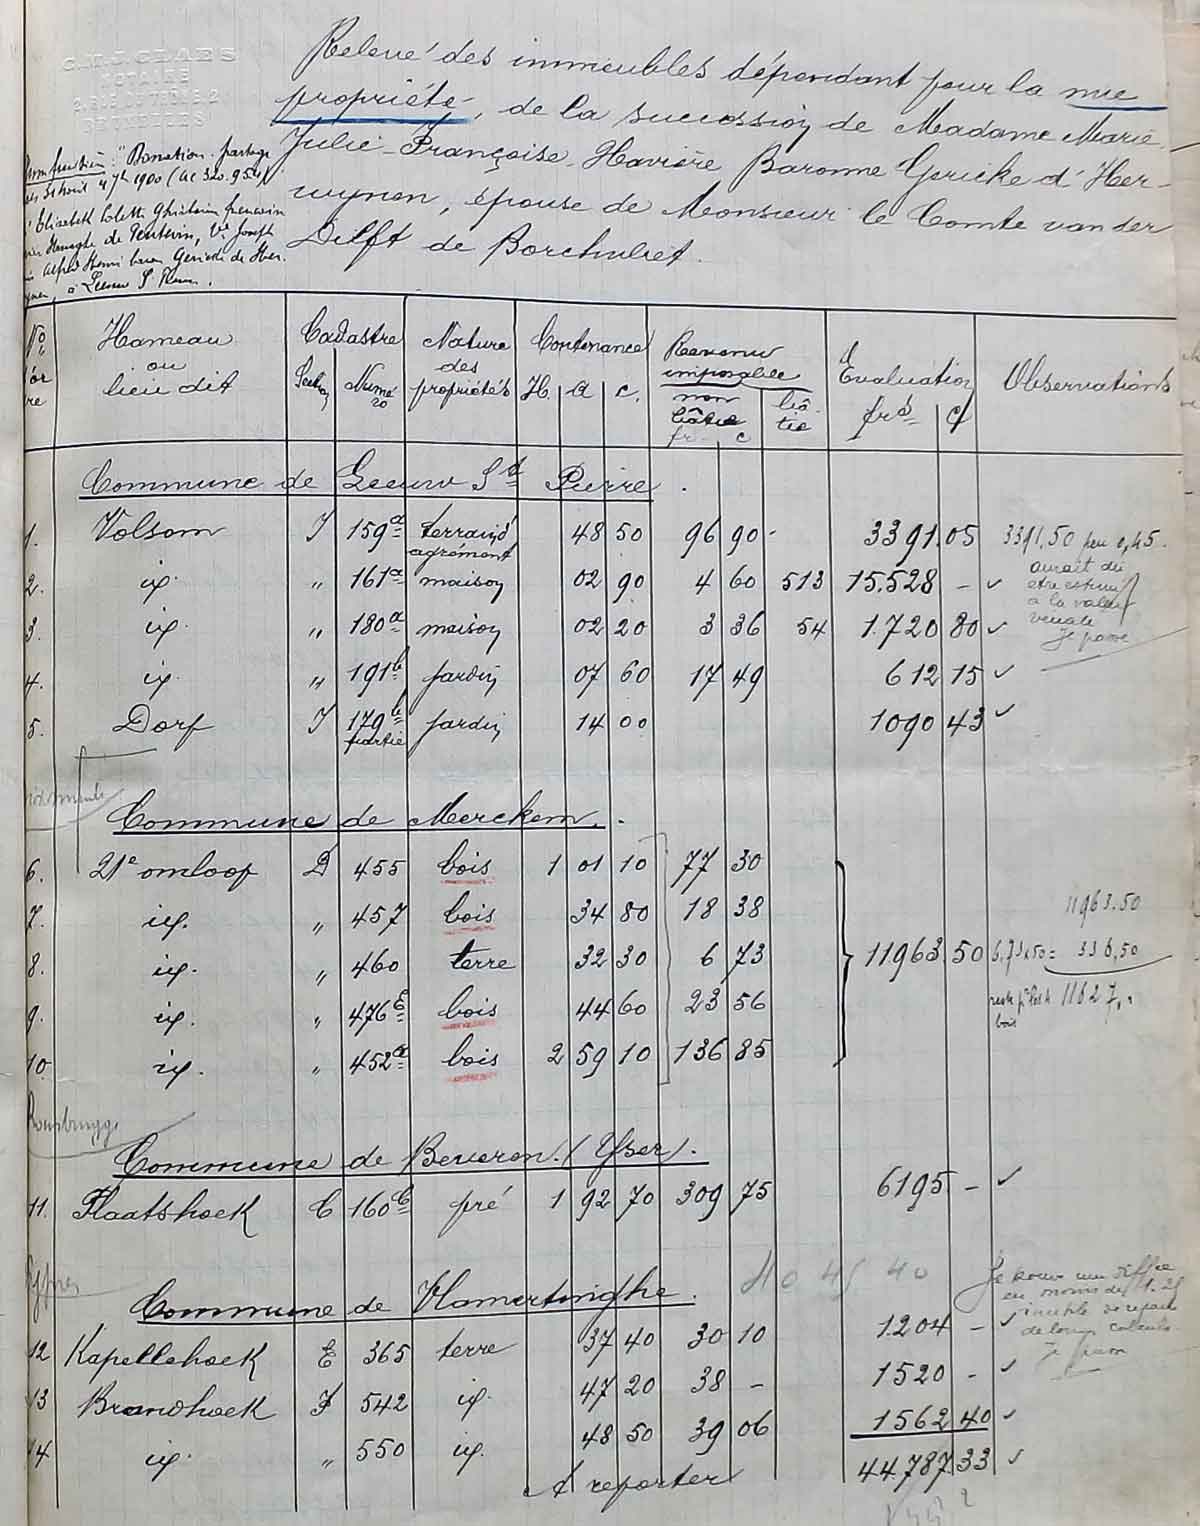 G.M.J. CLAES
NOTAIRE
BRUXELLES
Relevé des immeubles dépendant pour la nue
propriété, de la succession de Madame Marie
Julie Françoise Havière Baronne Gericke d'Her-
wynen, épouse de Monsieur le Comte van der
Dilft de Borchvliet.
Donation partage
1900 (
Elisabeth Colette Ghislaine
de Joseph
Alfred Henri baron Gericke de Her-
à Leeuw St Pierre.
No d'ordre | Hameau ou lieu dit | Cadastre Section Numéro | Nature des propriétés | Contenance H. a c. | Revenu imposable non bâtie fr c bâtie | Evaluation frs cs | Observations
Commune de Leeuw St Pierre.
1. Volsom J 159a terrain d'agrément 48 50 96 90 - 3391.05 3391,50 peu 0,45
2. id. " 161a maison 02 90 4 60 513 15.528 - ✓
aurait dû
être estimé
à la valeur
vénale
Je passe
3. id. " 180a maison 02 20 3 36 54 1.720 80 ✓
4. id. " 191b jardin 07 60 17 49 612 15 ✓
5. Dorf J 179b partie jardin 14 00 1090 43 ✓
Commune de Merckem.
6. 21e omloop D 455 bois 1 01 10 77 30
7. id. " 457 bois 34 80 18 38
8. id. " 460 terre 32 30 6 73
9. id. " 476E bois 44 60 23 56
10. id. " 452a bois 2 59 10 136 85
11963.50
11963.50
6,73x50= 336,50
reste pr les 4 11627,"
bois
Rousbrugge
Commune de Beveren. (Yser).
11. Plaatshoek C 160C pré 1 92 70 309 75 6195 - ✓
Ypres
Commune de Vlamertinghe. 40 45 40
12 Kapellehoek E 365 terre 37 40 30 10 1204 - ✓
13 Brandhoek F 542 id. 47 20 38 - 1520 - ✓
14 id. " 550 id. 48 50 39 06 1562 40 ✓
Je trouve une différence
en moins de 1.25
inutile de
calculs
Je passe
A reporter 44.787 33 ✓